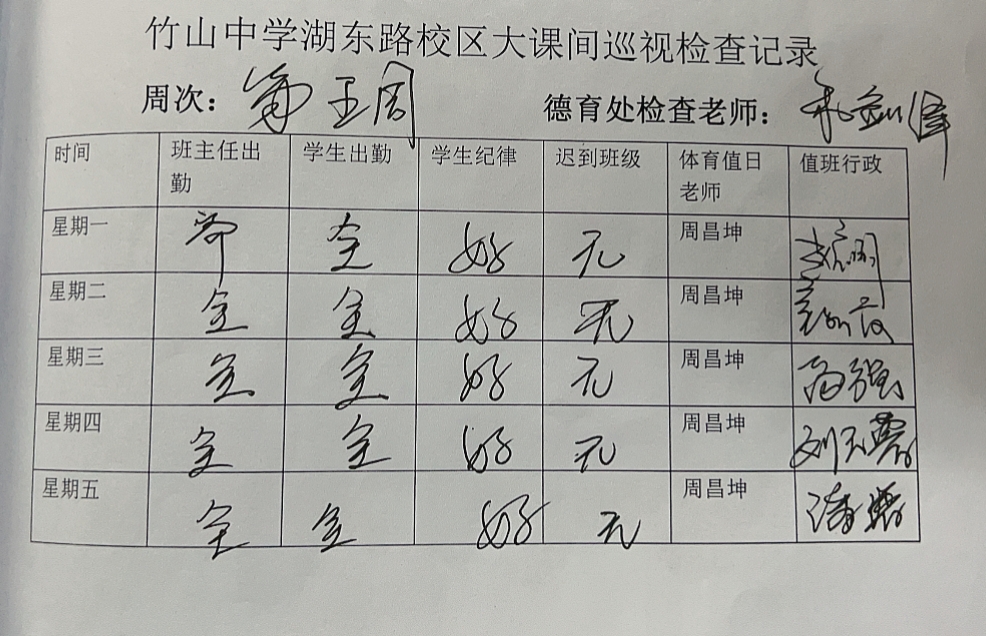 竹山中学湖东路校区大课间巡视检查记录
周次: 第五周 德育处检查老师:
时间 班主任出勤 学生出勤 学生纪律 迟到班级 体育值日老师 值班行政
星期一 全 好 无 周昌坤
星期二 全 全 好 无 周昌坤
星期三 全 全 好 无 周昌坤 高强
星期四 全 全 好 无 周昌坤
星期五 全 全 好 无 周昌坤